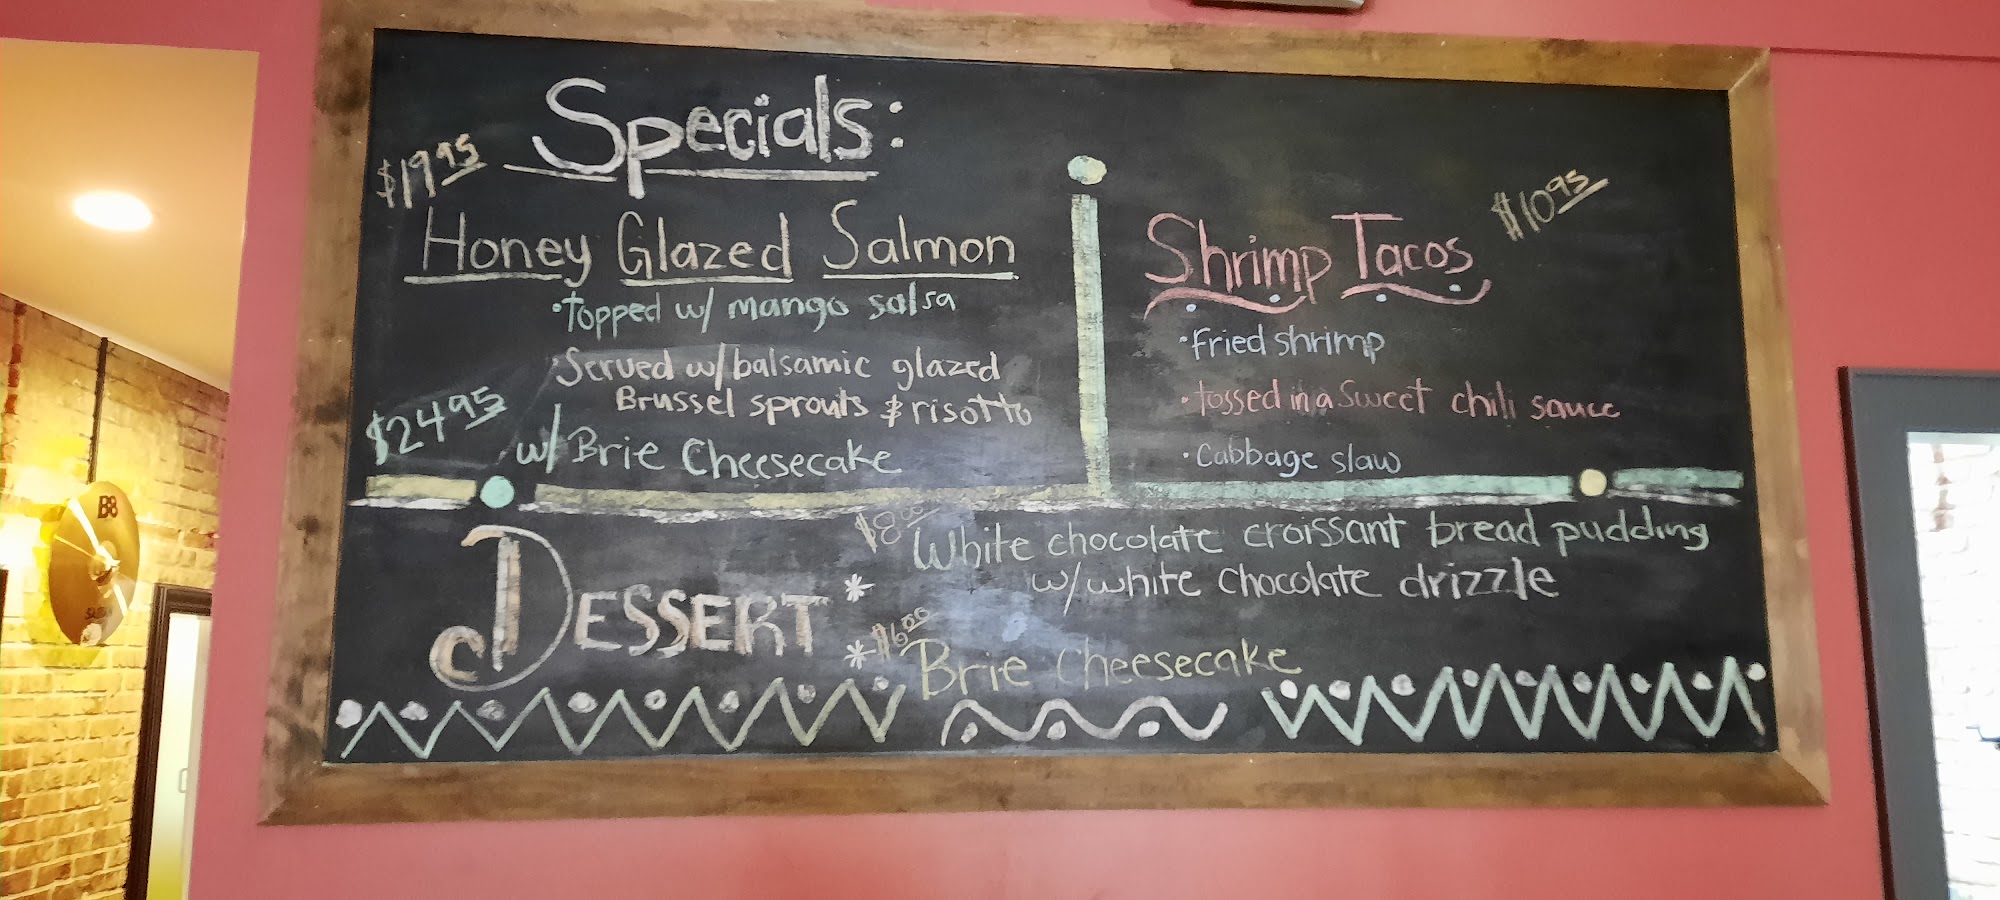 Specials:
$19.95
Honey Glazed Salmon
• topped w/ mango salsa
Served w/ balsamic glazed
Brussel sprouts & risotto
$24.95
w/ Brie Cheesecake
Shrimp Tacos
$10.95
• Fried shrimp
• tossed in a sweet chili sauce
• Cabbage slaw
DESSERT
* $8.00 White chocolate croissant bread pudding
w/ white chocolate drizzle
* $6.00 Brie Cheesecake
B8